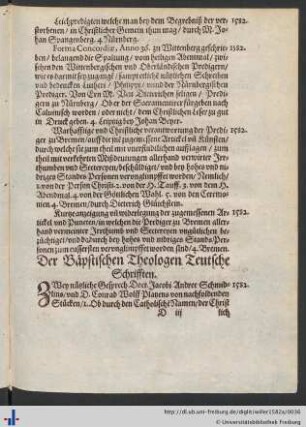 Leichpredigten welche man bey dem Begrebniß der ver- 1582.
storbenen / in Christlicher Gemein thun mag / durch M. Jo-
han Spangenberg. 4. Nürnberg.
Forma Concordiæ, Anno 36. zu Wittenberg geschrie- 1582.
ben / belangend die Spaltung / vom heiligen Abentmal / zwi-
schen den Wittenbergischen vnd Oberländischen Predigern /
wie es darmit sey zugangẽ / sampt etliche nützlichen Schreiben
vnd bedencken Lutheri / Philippi / vnnd der Nürnbergischen
Prediger. Von M. Veit Dieterichen seligen / Predi-
gern zu Nürnberg / Ob der Sacramentirer fürgeben nach
Calumnisch worden / oder nicht / dem Christlichen Leser zu gut
in Druck geben. 4. Leipzig bey Johan Beyer.
Warhafftige vnd Christliche verantwortung der Predi- 1582.
ger zu Bremen / auff die
durch welche sie zum theil mit verfuerischen aufflagen / zum
theil mit verkehrten Mißdeutungen allerhand verwirter Jrr-
thumben vnd Seetereyen / beschüldiget / vnd bey hohes vnd ni-
drigen Standes Personen verunglimpffet worden / Nemlich /
1. von der Person Christi. 2. von der H. Tauff. 3. von dem H.
Abendmal. 4. von der Göttlichen Wahl. 5. von den Ceremo-
nien. 4. Bremen / durch Dieterich Glüchstein.
Kurtze anzeigung vñ widerlegung der zugemessenen Ar- 1582.
tickel vnd Puncten, in welchen die Prediger zu Bremen aller-
hand vermeinter Jrrthumb vnd Seetereyen vngütlichen be-
züchtiget / vnd dadurch bey hohes vnd nidriges Stands Perso-
nen zum eussersten verunglimpffet worden sind / 4. Bremen.
Der Bäpstischen Theologen Teutsche
Schrifften.
ZWey nützliche Gesprech Doct. Jacobi Andree Schmid- 1582.
lins / vnd D. Conrad Wolff Platzens von nachfolgenden
Stücken / 1. Ob durch den Catholische Namen / der Christ
D iij lich
http://dl.ub.uni-freiburg.de/diglit/willer1582a/0036
© Universitätsbibliothek Freiburg